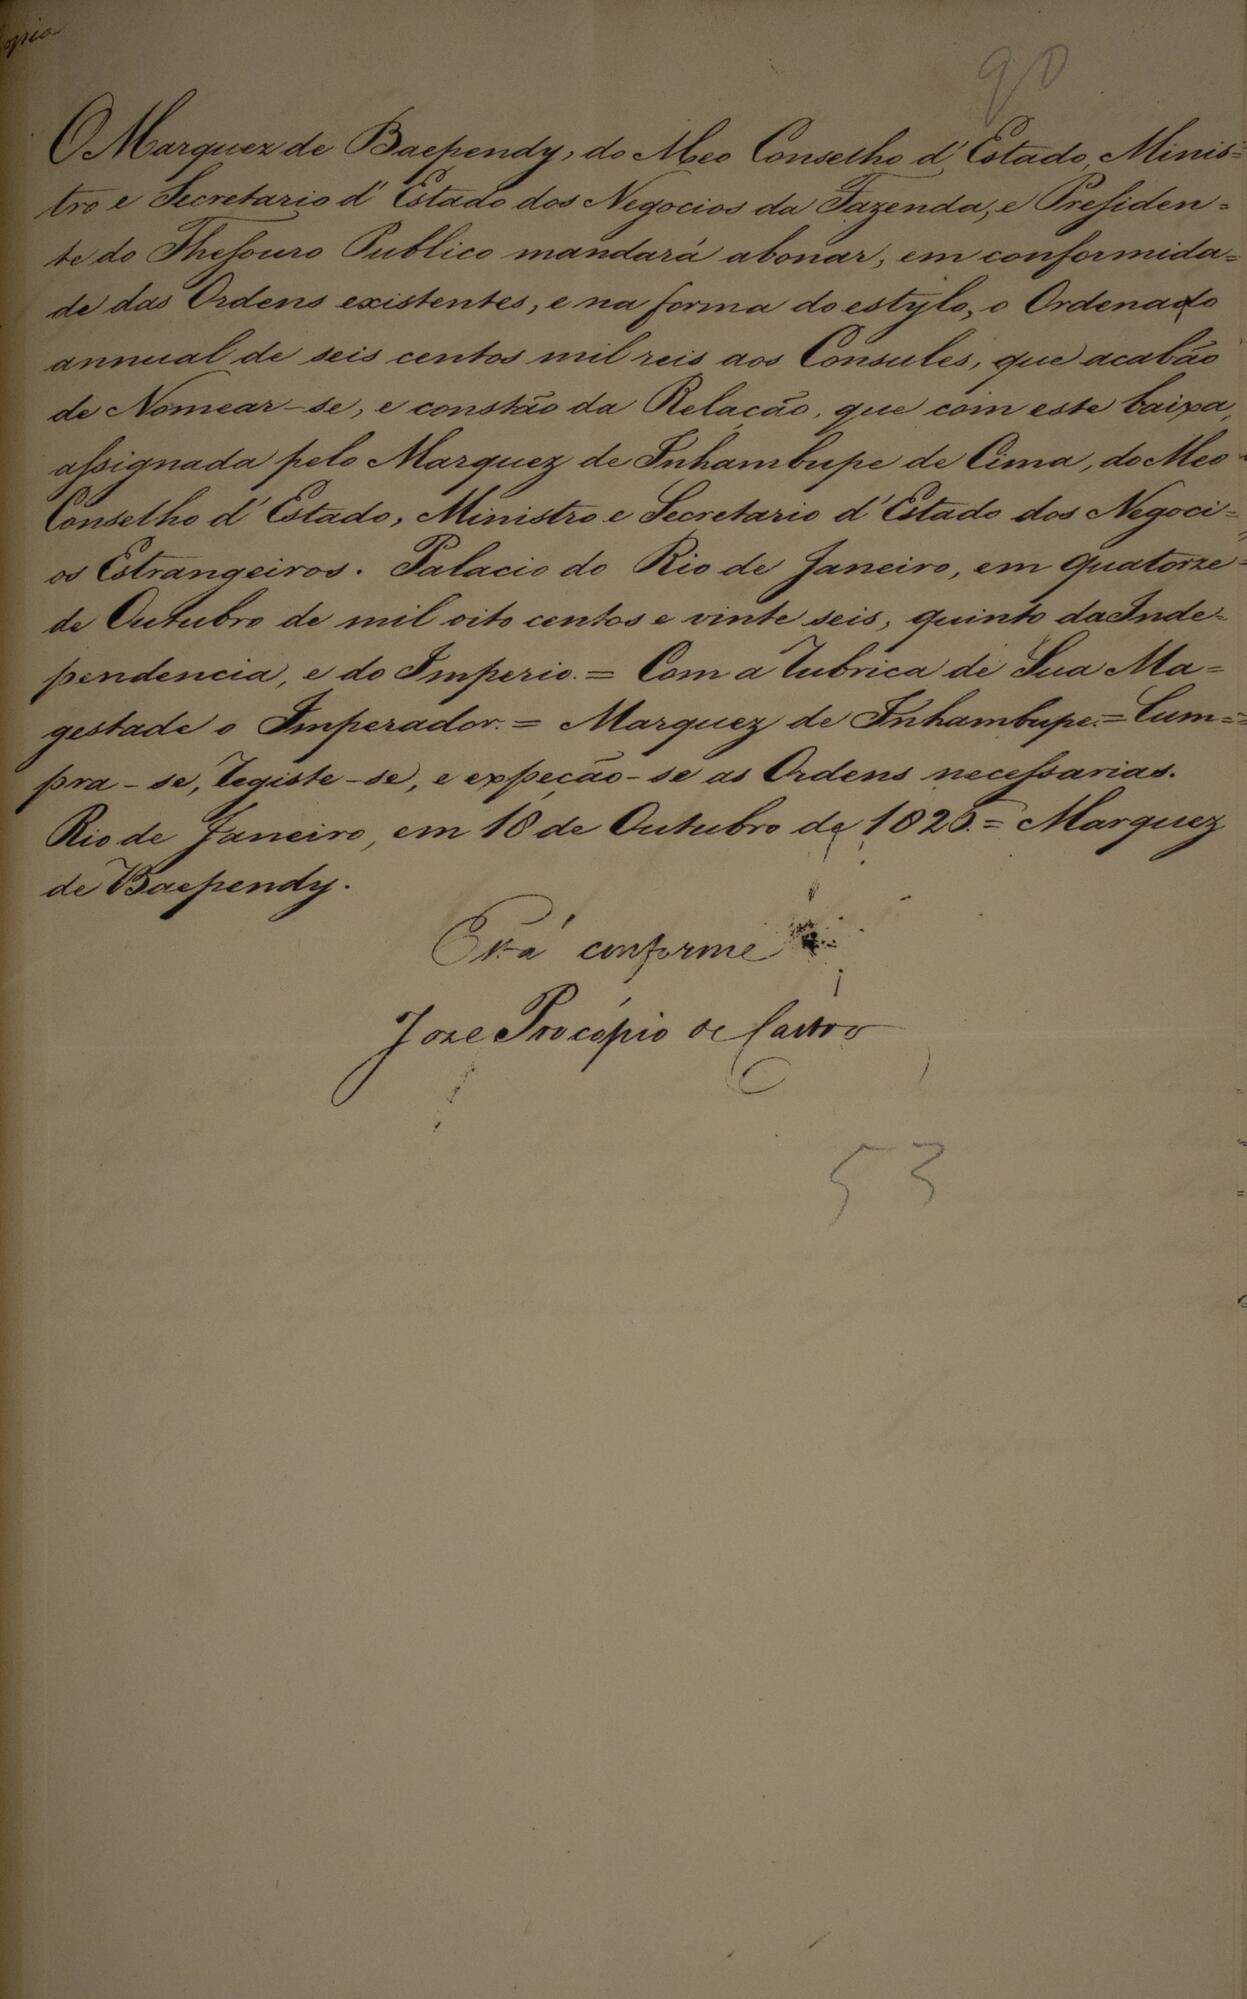 Copia
90
O Marquez de Baependy, do Meo Conselho d'Estado, Minis=
tro e Secretario d'Estado dos Negocios da Fazenda, e Presiden=
te do Thesouro Publico mandará abonar, em conformida=
de das Ordens existentes, e na forma do estylo, o Ordenado
annual de seis centos mil reis aos Consules, que acabão
de Nomear-se, e constão da Relação, que com este baixa,
assignada pelo Marquez de Inhambupe de Cima, do Meo
Conselho d'Estado, Ministro e Secretario d'Estado dos Negoci=
os Estrangeiros. Palacio do Rio de Janeiro, em quatorze
de Outubro de mil oito centos e vinte seis, quinto da Inde=
pendencia, e do Imperio. = Com a Rubrica de Sua Ma=
gestade o Imperador. = Marquez de Inhambupe. = Cum=
pra-se, Registe-se, e expeção-se as Ordens necessarias.
Rio de Janeiro, em 18 de Outubro de 1826. = Marquez
de Baependy.
Está conforme
Joze Procópio de Castro
53